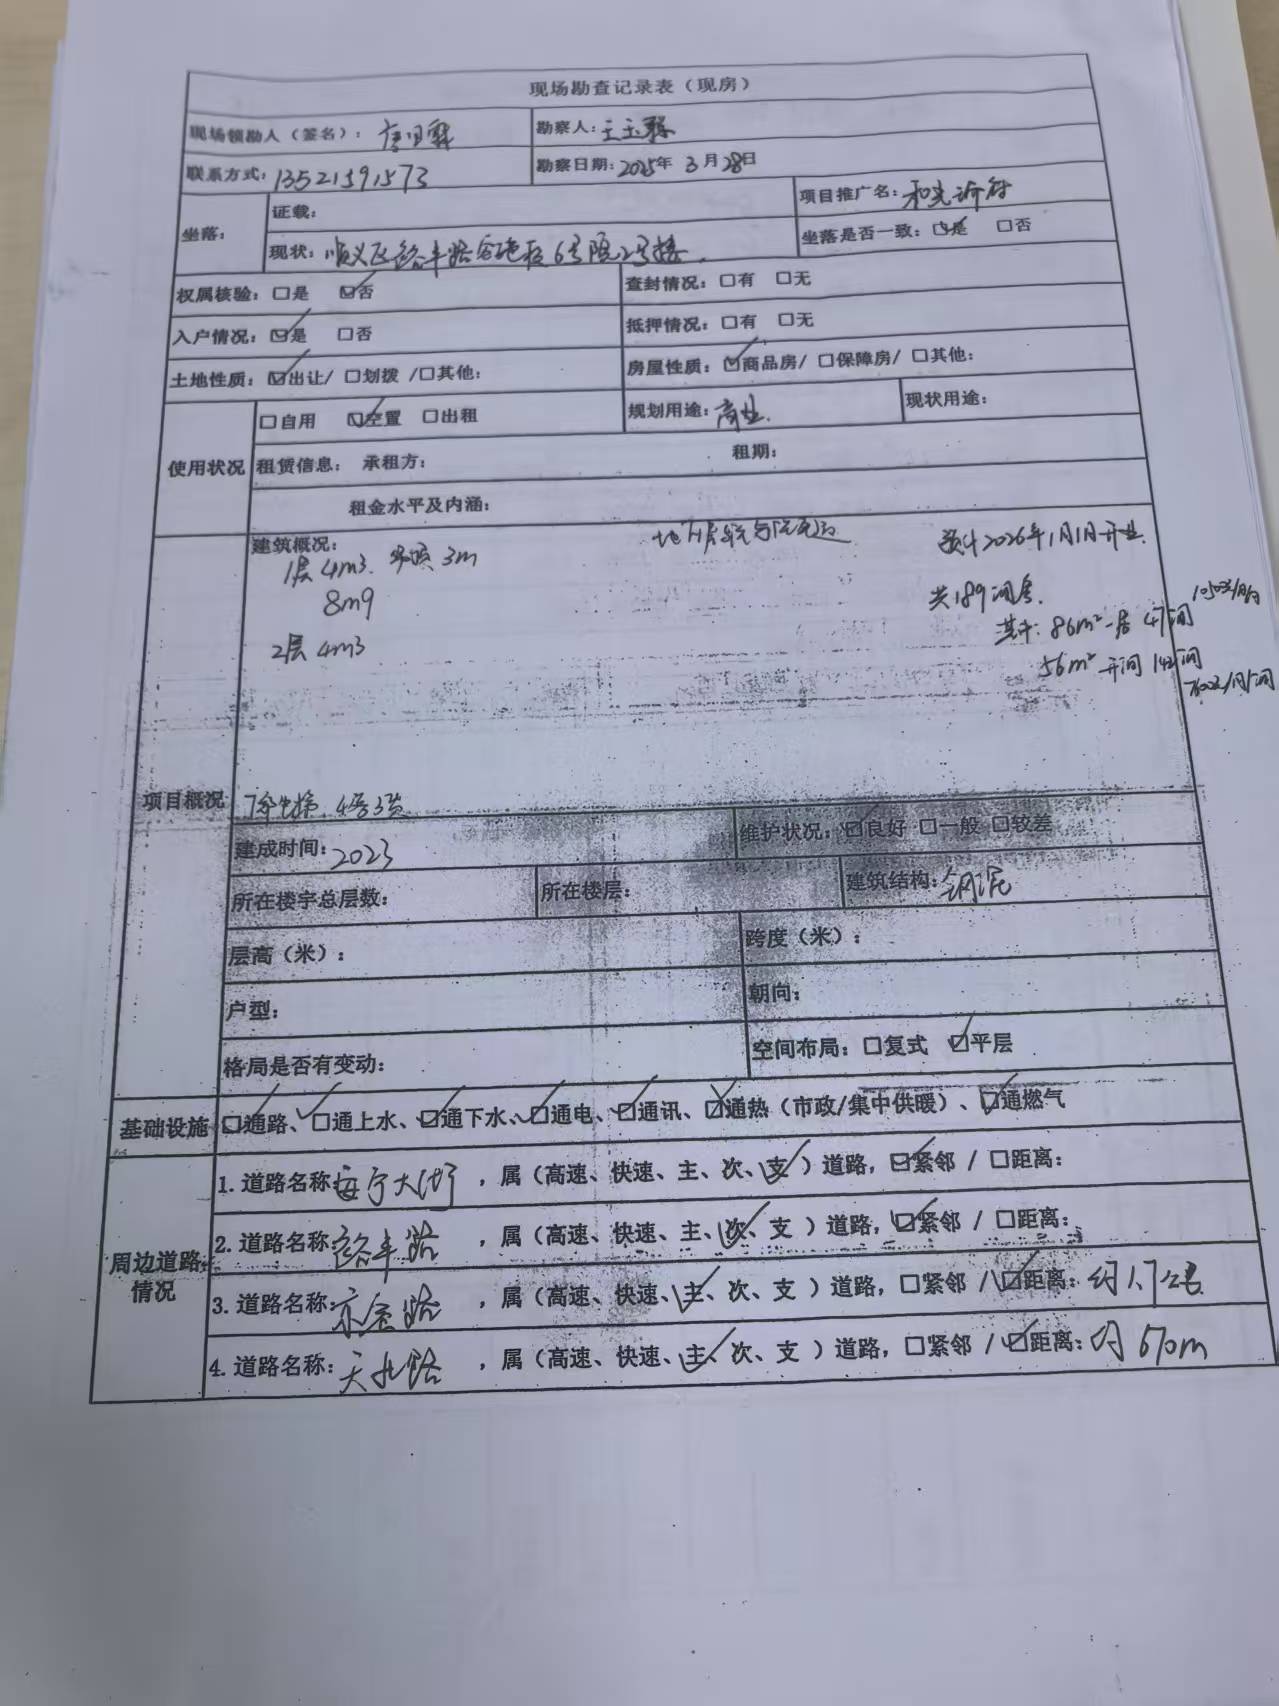 现场勘查记录表（现房）
现场领勘人（签名）： 勘察人：王玉
联系方式：13521591573 勘察日期：2025年 3月 28日
坐落： 证载： 项目推广名：和光
现状：顺义区 丰路 6号院2号楼 坐落是否一致：☑是 □否
权属核验：□是 ☑否 查封情况：□有 □无
入户情况：☑是 □否 抵押情况：□有 □无
土地性质：☑出让/ □划拨 /□其他： 房屋性质：☑商品房/ □保障房/ □其他：
使用状况 □自用 ☑空置 □出租 规划用途：商业 现状用途：
租赁信息： 承租方： 租期：
租金水平及内涵：
项目概况 建筑概况：
1层 4m3. 3m 预计2026年1月1日开业.
8m9 共189间房.
2层 4m3 其中：86m² 一居 47间
56m² 开间 142间
7部电梯.
建成时间：2023 维护状况：☑良好 □一般 □较差
所在楼宇总层数： 所在楼层： 建筑结构：钢混
层高（米）： 跨度（米）：
户型： 朝向：
格局是否有变动： 空间布局：□复式 ☑平层
基础设施 ☑通路、☑通上水、☑通下水、☑通电、☑通讯、☑通热（市政/集中供暖）、☑通燃气
周边道路情况 1. 道路名称：安宁大街，属（高速、快速、主、次、支√）道路，☑紧邻 / □距离：
2. 道路名称： 丰路，属（高速、快速、主、次√、支 ）道路，☑紧邻 / □距离：
3. 道路名称： 路，属（高速、快速、主√、次、支 ）道路，□紧邻 / ☑距离：约1.7公里
4. 道路名称：天北路，属（高速、快速、主√、次、支 ）道路，□紧邻 / ☑距离：约 670m